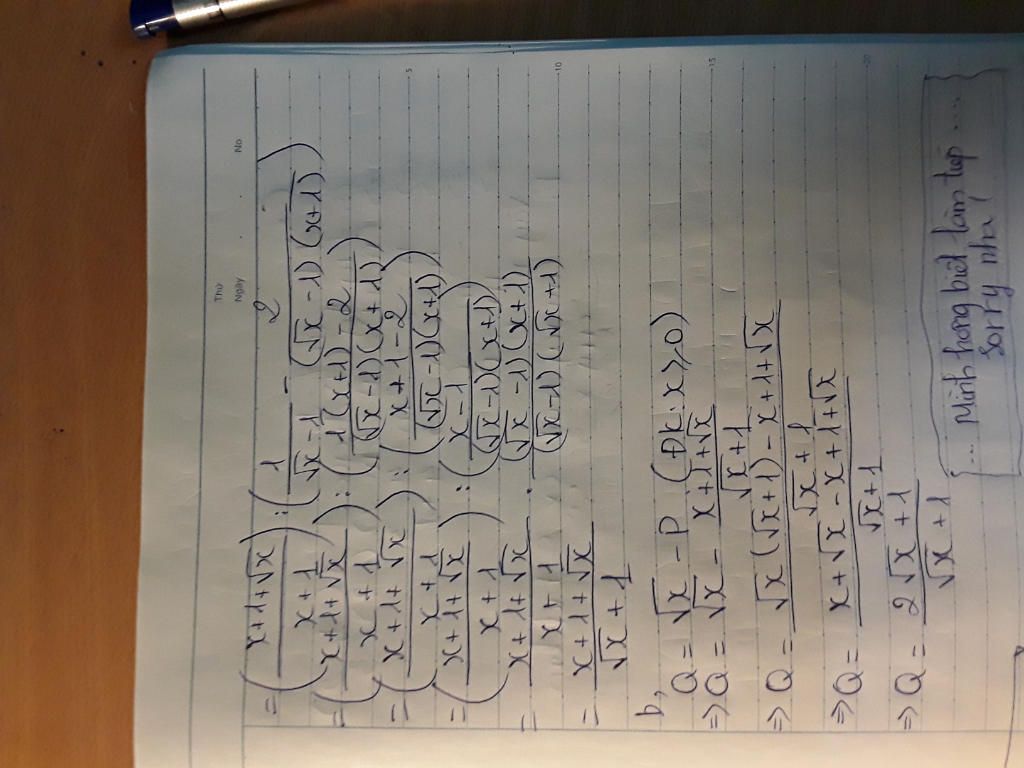 Thứ
Ngày No
= ((x+1+√x)/(x+1)) : (1/(√x-1) - 2/((√x-1)(x+1)))
= ((x+1+√x)/(x+1)) : ((1(x+1)-2)/((√x-1)(x+1)))
= ((x+1+√x)/(x+1)) : ((x+1-2)/((√x-1)(x+1)))
= ((x+1+√x)/(x+1)) : ((x-1)/((√x-1)(x+1)))
= (x+1+√x)/(x+1) . ((√x-1)(x+1))/((√x-1)(√x+1))
= (x+1+√x)/(√x+1)
b,
Q = √x - P (ĐK: x≥0)
⇒ Q = √x - (x+1+√x)/(√x+1)
⇒ Q = (√x(√x+1) - x+1+√x)/(√x+1)
⇒ Q = (x+√x-x+1+√x)/(√x+1)
⇒ Q = (2√x+1)/(√x+1)
... Mình hong biết làm tiếp ...
Sorry nha!
5
10
15
20